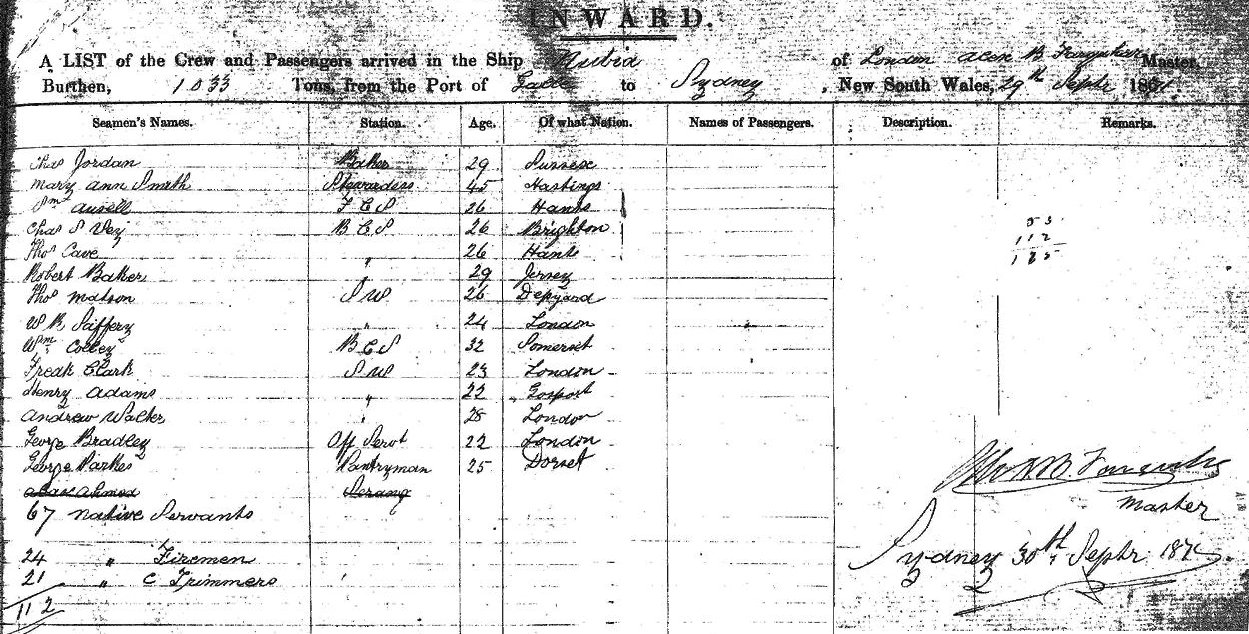 INWARD.
A LIST of the Crew and Passengers arrived in the Ship Nubia of London Master,
Burthen, 1033 Tons, from the Port of Galle to Sydney, New South Wales, 29th Septr 187
Seamen's Names. Station. Age. Of what Nation. Names of Passengers. Description. Remarks.
Thos Jordan Baker 29 Sussex
Mary Ann Smith Stewardess 45 Hastings
26 Hants
Chas S Vey B C S 26 Brighton
53
112
Thos Cave " 26 Hants
165
Robert Baker 29 Jersey
Thos Matson S W 26
W B Saffery " 24 London
Wm Colley B C S 32 Somerset
Fredk Clark S W 23 London
Henry Adams " 22 Gosport
Andrew Walker " 28 London
George Bradley Off Servt 22 London
George Parkes Pantryman 25 Dorset
Ahmed Serang
Master
67 Native Servants
24 " Firemen
Sydney 30th Septr 187
21 " C Trimmers
112